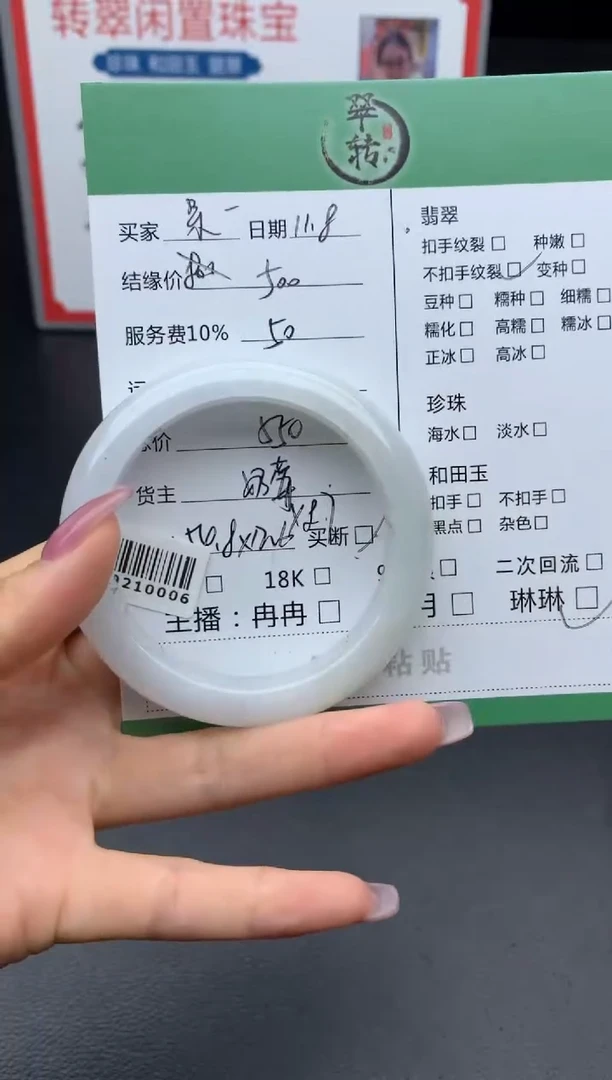 转翠闲置珠宝
珍珠 和田玉 翡翠
翠
转
买家 日期 11.8
结缘价 500
服务费10% 50
总价 550
货主
买断□
18K □
主播：冉冉 □
210006
翡翠
扣手纹裂□ 种嫩□
不扣手纹裂□ 变种□
豆种□ 糯种□ 细糯□
糯化□ 高糯□ 糯冰□
正冰□ 高冰□
珍珠
海水□ 淡水□
和田玉
扣手□ 不扣手□
黑点□ 杂色□
□ 二次回流□
月 □ 琳琳□
粘贴